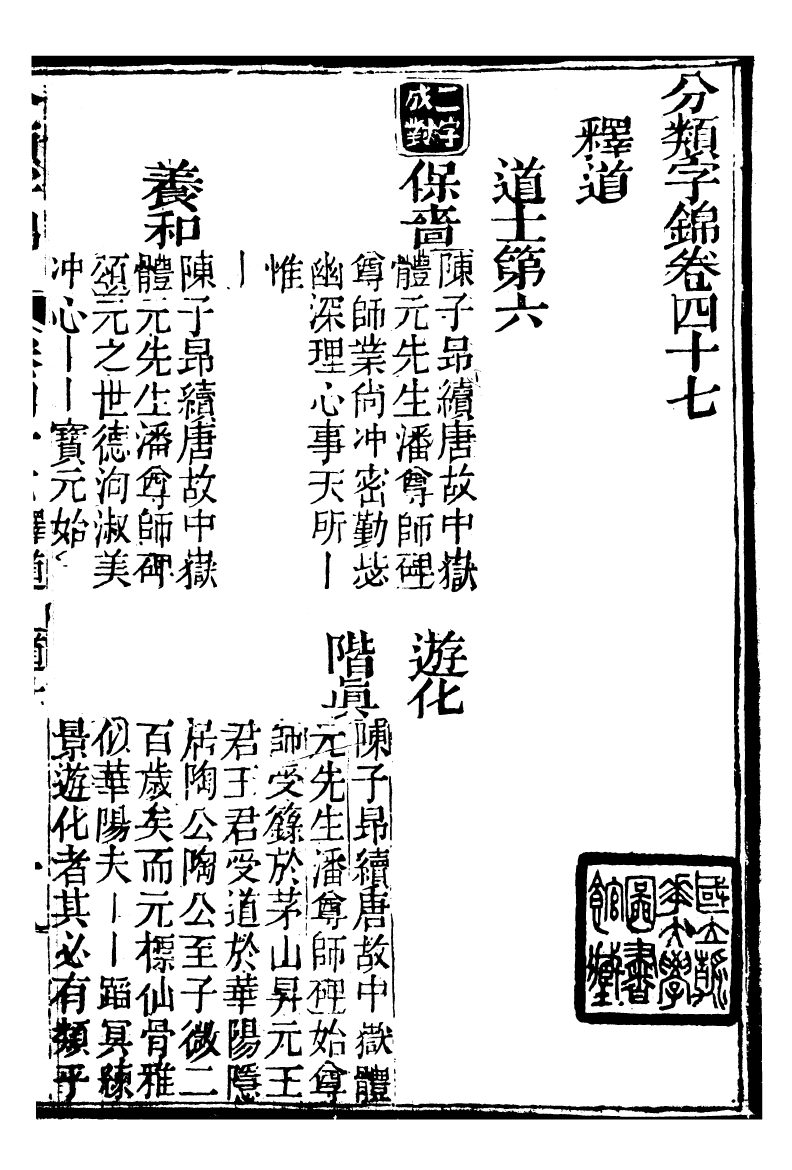 分類字錦卷四十七
釋道
道士第六
二字成對
保嗇
陳子昂續唐故中嶽
體元先生潘尊師碑
尊師業尚冲密勤毖
幽深理心事天所丨
惟
丨
養和
陳子昂續唐故中嶽
體元先生潘尊師碑
頌元之世德洵淑美
冲心丨丨寶元始
遊化
階眞
陳子昂續唐故中嶽體
元先生潘尊師碑始尊
師受籙於茅山昇元王
君王君受道於華陽隱
居陶公陶公至子微二
百歲矣而元標仙骨雅
似華陽夫丨丨蹈冥練
景遊化者其必有類乎
國立清華大學圖書館藏